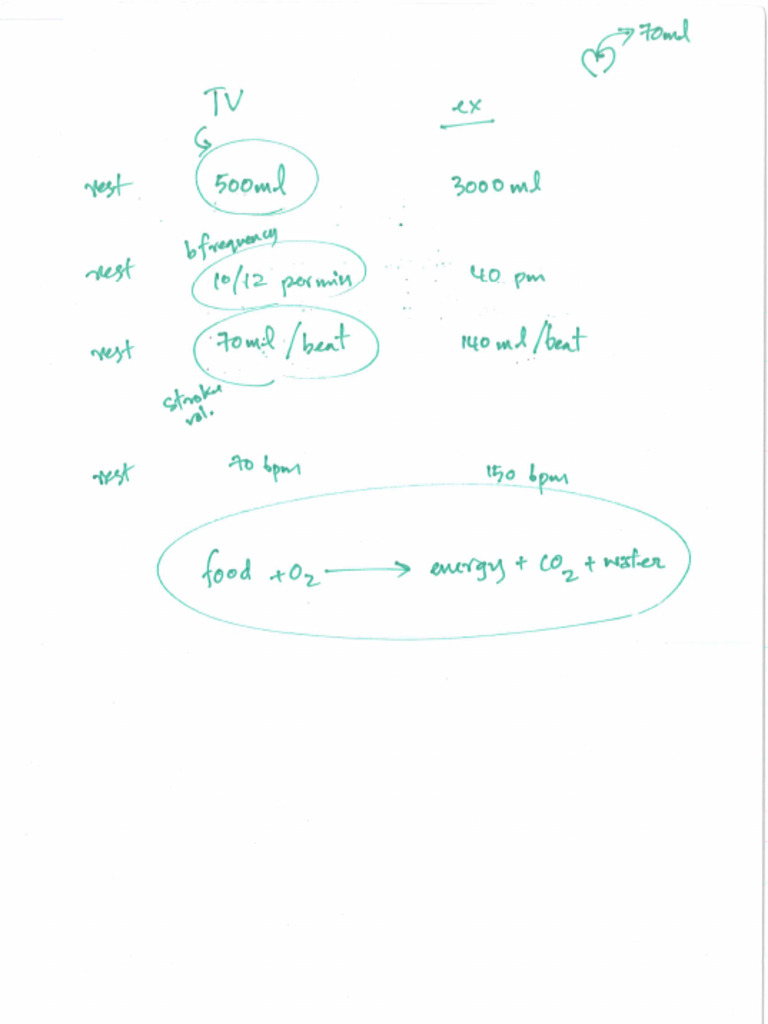 70ml
TV ex
rest 500ml 3000 ml
b frequency
rest 10/12 per min 40 pm
rest 70ml /beat 140 ml/beat
stroke
vol.
rest 70 bpm 150 bpm
food + O₂ ⟶ energy + CO₂ + water